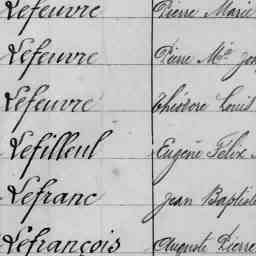 Lefeuvre Pierre Marie
Lefeuvre Pierre Mie
Lefeuvre Théodore Louis
Lefilleul Eugène Félix
Lefranc Jean Baptiste
Lefrançois Auguste Pierre